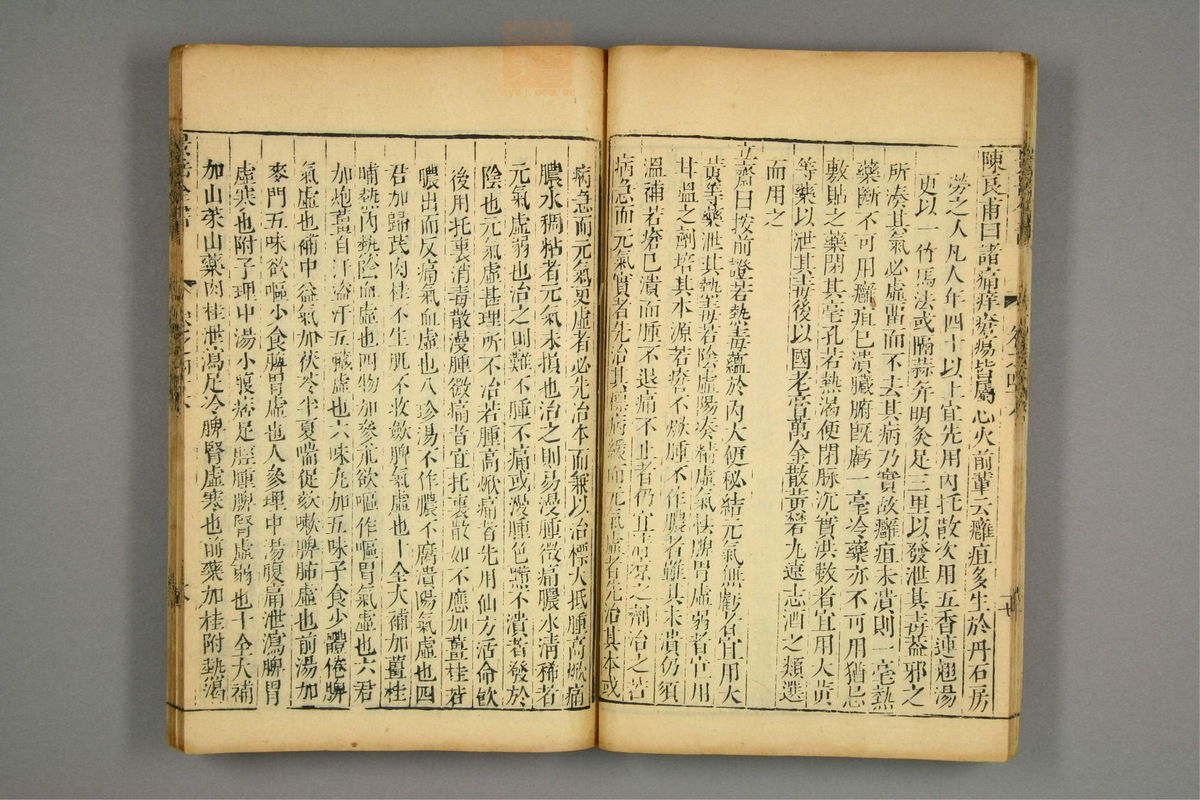 陳良甫曰諸痛痒瘡瘍皆屬心火前輩云癰疽多生於丹石房
勞之人凡人年四十以上宜先用內托散次用五香連翹湯
更以一竹馬法或隔蒜并明灸足三里以發泄其毒蓋邪之
所湊其氣必虛留而不去其病乃實故癰疽未潰則一毫熱
藥斷不可用癰疽已潰臟腑既虧一毫冷藥亦不可用猶忌
敷貼之藥閉其毫孔若熱渴便閉脉沉實洪數者宜用大黃
等藥以泄其毒後以國老膏萬金散黃礬丸遠志酒之類選
而用之
立齋曰按前證若熱毒蘊於內大便秘結元氣無虧者宜用大
黃等藥泄其熱毒若陰虛陽湊精虛氣怯脾胃虛弱者宜用
甘溫之劑培其本源若瘡不焮腫不作膿者雖其未潰仍須
溫補若瘡已潰而腫不退痛不止者仍宜清凉之劑治之若
病急而元氣實者先治其標病緩而元氣虛者先治其本或
病急而元氣更虛者必先治本而兼以治標大抵腫高焮痛
膿水稠粘者元氣未損也治之則易漫腫微痛膿水淸稀者
元氣虛弱也治之則難不腫不痛或漫腫色黯不潰者發於
陰也元氣虛甚理所不治若腫高焮痛者先用仙方活命飲
後用托裏消毒散漫腫微痛者宜托裏散如不應加薑桂若
膿出而反痛氣血虛也八珍湯不作膿不腐潰陽氣虛也四
君加歸芪肉桂不生肌不收斂脾氣虛也十全大補加薑桂
晡熱內熱陰血虛也四物加參朮欲嘔作嘔胃氣虛也六君
加炮薑自汗盜汗五臟虛也六味丸加五味子食少體倦脾
氣虛也補中益氣加茯苓半夏喘促欬嗽脾肺虛也前湯加
麥門五味欲嘔少食脾胃虛也人參理中湯腹痛泄瀉脾胃
虛寒也附子理中湯小腹痞足脛腫脾腎虛弱也十全大補
加山茱山藥肉桂泄瀉足冷脾腎虛寒也前藥加桂附熱渴